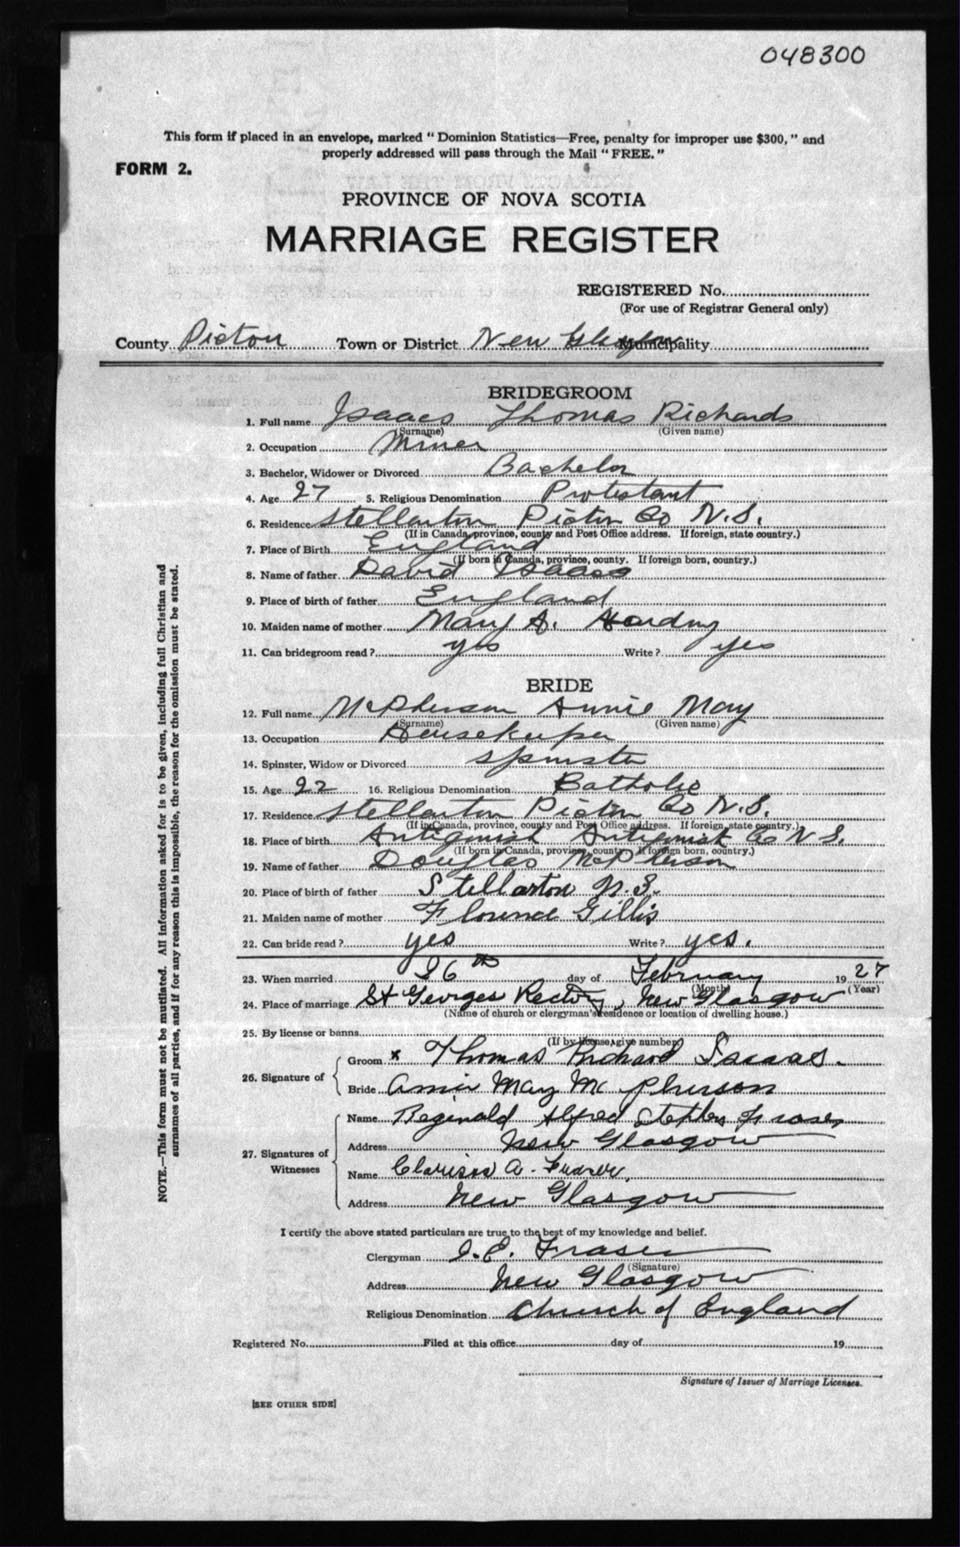 048300
This form if placed in an envelope, marked "Dominion Statistics—Free, penalty for improper use $300," and
properly addressed will pass through the Mail "FREE."
FORM 2.
PROVINCE OF NOVA SCOTIA
MARRIAGE REGISTER
REGISTERED No.
(For use of Registrar General only)
County Pictou Town or District New Glasgow Municipality
BRIDEGROOM
1. Full name Isaacs Thomas Richards
(Surname) (Given name)
2. Occupation Miner
3. Bachelor, Widower or Divorced Bachelor
4. Age 27 5. Religious Denomination Protestant
6. Residence Stellarton Pictou Co N.S.
(If in Canada, province, county and Post Office address. If foreign, state country.)
7. Place of Birth England
(If born in Canada, province, county. If foreign born, country.)
8. Name of father David Isaacs
9. Place of birth of father England
10. Maiden name of mother Mary A. Harding
11. Can bridegroom read? yes Write? yes
BRIDE
12. Full name McPherson Annie May
(Surname) (Given name)
13. Occupation Housekeeper
14. Spinster, Widow or Divorced Spinster
15. Age 22 16. Religious Denomination Catholic
17. Residence Stellarton Pictou Co N.S.
(If in Canada, province, county and Post Office address. If foreign, state country.)
18. Place of birth Antigonish Antigonish Co N S.
(If born in Canada, province, county. If foreign born, country.)
19. Name of father Douglas McPherson
20. Place of birth of father Stellarton N.S.
21. Maiden name of mother Florence Gillis
22. Can bride read? yes Write? yes.
23. When married 26th day of February 1927
(Month) (Year)
24. Place of marriage St Georges Rectory, New Glasgow
(Name of church or clergyman's residence or location of dwelling house.)
25. By license or banns
(If by license, give number)
26. Signature of Groom x Thomas Richard Isaacs.
Bride Annie May McPherson
27. Signatures of Witnesses Name Reginald Alfred Stephen Fraser
Address New Glasgow
Name Clarissa A. Fraser,
Address New Glasgow
I certify the above stated particulars are true to the best of my knowledge and belief.
Clergyman J. E. Fraser
(Signature)
Address New Glasgow
Religious Denomination Church of England
Registered No. Filed at this office day of 19
Signature of Issuer of Marriage Licenses.
[SEE OTHER SIDE]
NOTE.—This form must not be mutilated. All information asked for is to be given, including full Christian and
surnames of all parties, and if for any reason this is impossible, the reason for the omission must be stated.